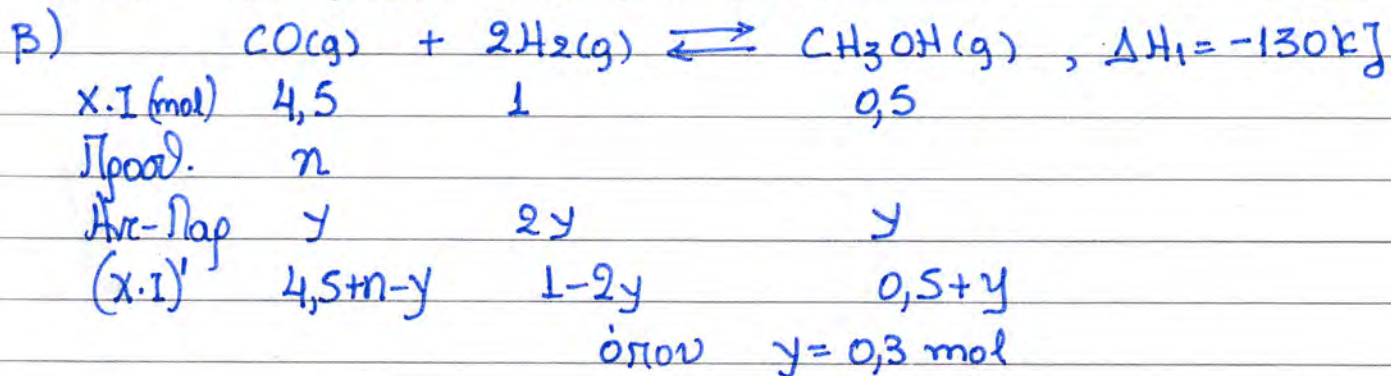 β) CO(g) + 2H2(g) ⇄ CH3OH(g) , ΔH1 = -130kJ
X.I (mol) 4,5 1 0,5
Προσθ. n
Αντ-Παρ y 2y y
(X.I)' 4,5+n-y 1-2y 0,5+y
όπου y = 0,3 mol